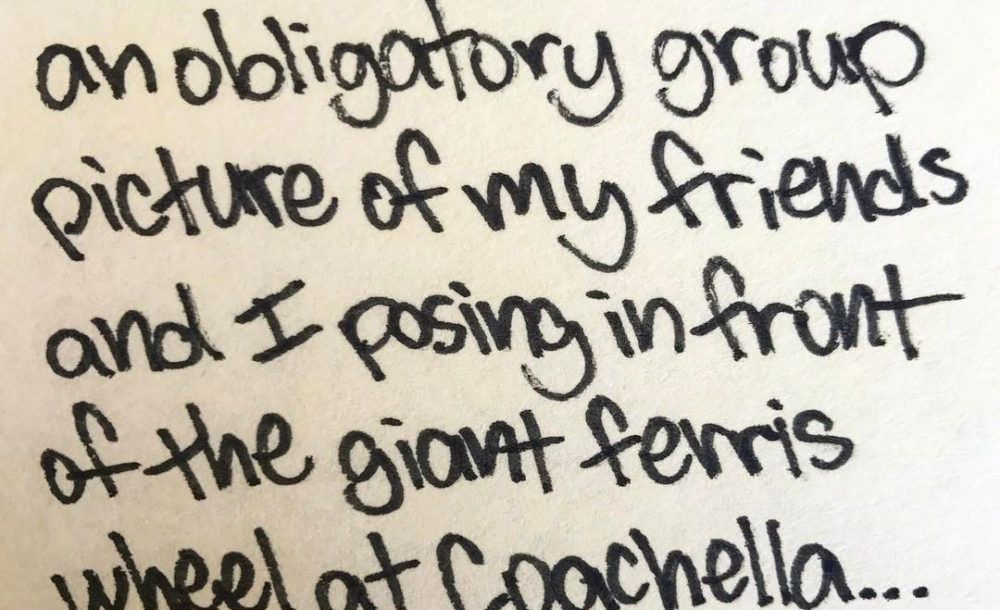 an obligatory group
picture of my friends
and I posing in front
of the giant ferris
wheel at Coachella...